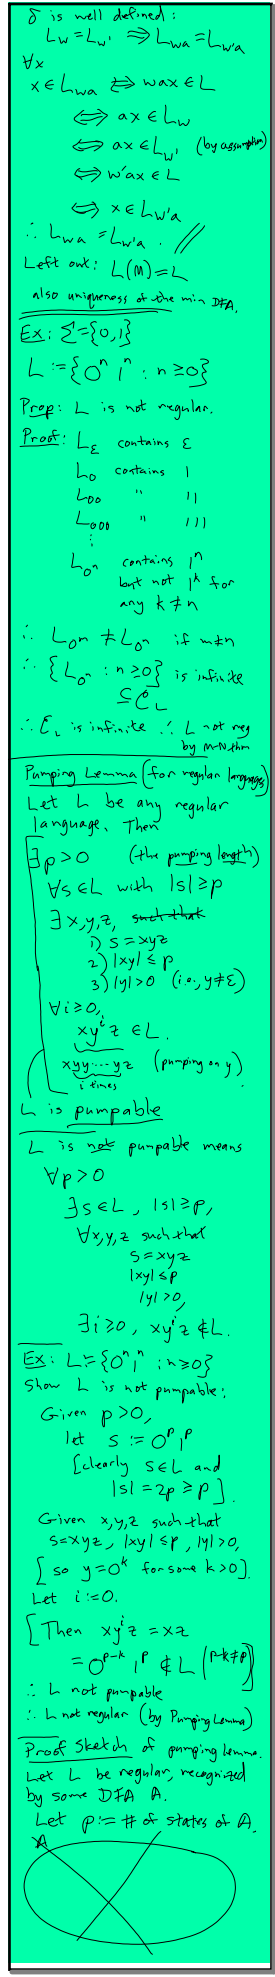 δ is well defined:
L_w = L_w' ⟹ L_wa = L_w'a
∀x
x ∈ L_wa ⟺ wax ∈ L
⟺ ax ∈ L_w
⟺ ax ∈ L_w' (by assumption)
⟺ w'ax ∈ L
⟺ x ∈ L_w'a
∴ L_wa = L_w'a . //
Left out: L(M) = L
also uniqueness of the min DFA.
Ex: Σ = {0,1}
L := {0^n 1^n : n ≥ 0}
Prop: L is not regular.
Proof: L_ε contains ε
L_0 contains 1
L_00 " 11
L_000 " 111
⋮
L_0^n contains 1^n
but not 1^k for
any k ≠ n
∴ L_0^m ≠ L_0^n if m≠n
∴ {L_0^n : n ≥ 0} is infinite
⊆ C_L
∴ C_L is infinite ∴ L not reg
by M-N thm
Pumping Lemma (for regular languages)
Let L be any regular
language. Then
∃p>0 (the pumping length)
∀s∈L with |s| ≥ p
∃x,y,z, such that
1) s = xyz
2) |xy| ≤ p
3) |y| > 0 (i.e., y≠ε)
∀i≥0,
xy^i z ∈ L.
xyy⋯yz (pumping on y)
i times
L is pumpable
L is not pumpable means
∀p>0
∃s∈L, |s|≥p,
∀x,y,z such that
s = xyz
|xy| ≤ p
|y| > 0,
∃i≥0, xy^i z ∉ L.
Ex: L := {0^n 1^n : n≥0}
Show L is not pumpable:
Given p>0,
let s := 0^p 1^p
[clearly s∈L and
|s| = 2p ≥ p].
Given x,y,z such that
s=xyz, |xy|≤p, |y|>0,
[so y=0^k for some k>0].
Let i:=0.
[Then xy^i z = xz
= 0^{p-k} 1^p ∉ L (p-k≠p)]
∴ L not pumpable
∴ L not regular (by Pumping Lemma)
Proof Sketch of pumping lemma.
Let L be regular, recognized
by some DFA A.
Let p := # of states of A.
A